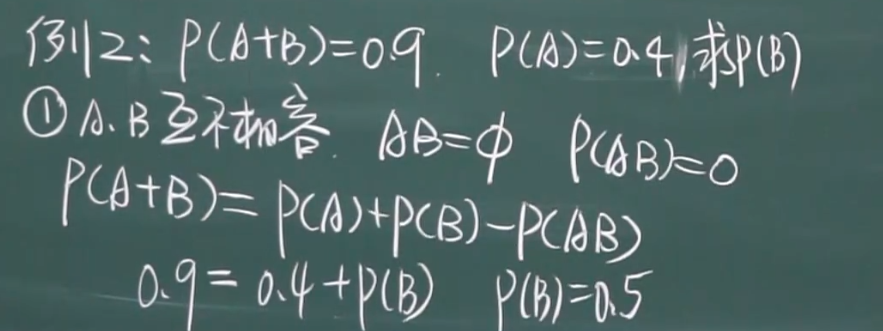 例2: P(A+B)=0.9. P(A)=0.4, 求P(B)
① A.B互不相容. AB=φ P(AB)=0
P(A+B)=P(A)+P(B)-P(AB)
0.9=0.4+P(B) P(B)=0.5